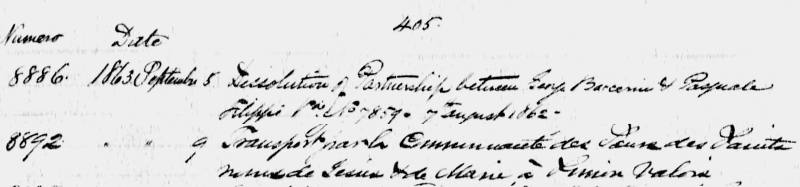 405.
Numero Date
8886. 1863 Septembre 5 Dissolution of Partnership between George Barcerini & Pasquale
Filippi No 7859. 7 August 1862.
8892 " " 9 Transport par la Communauté des Sœurs des Saints
noms de Jésus & de Marie, à Simon Valois